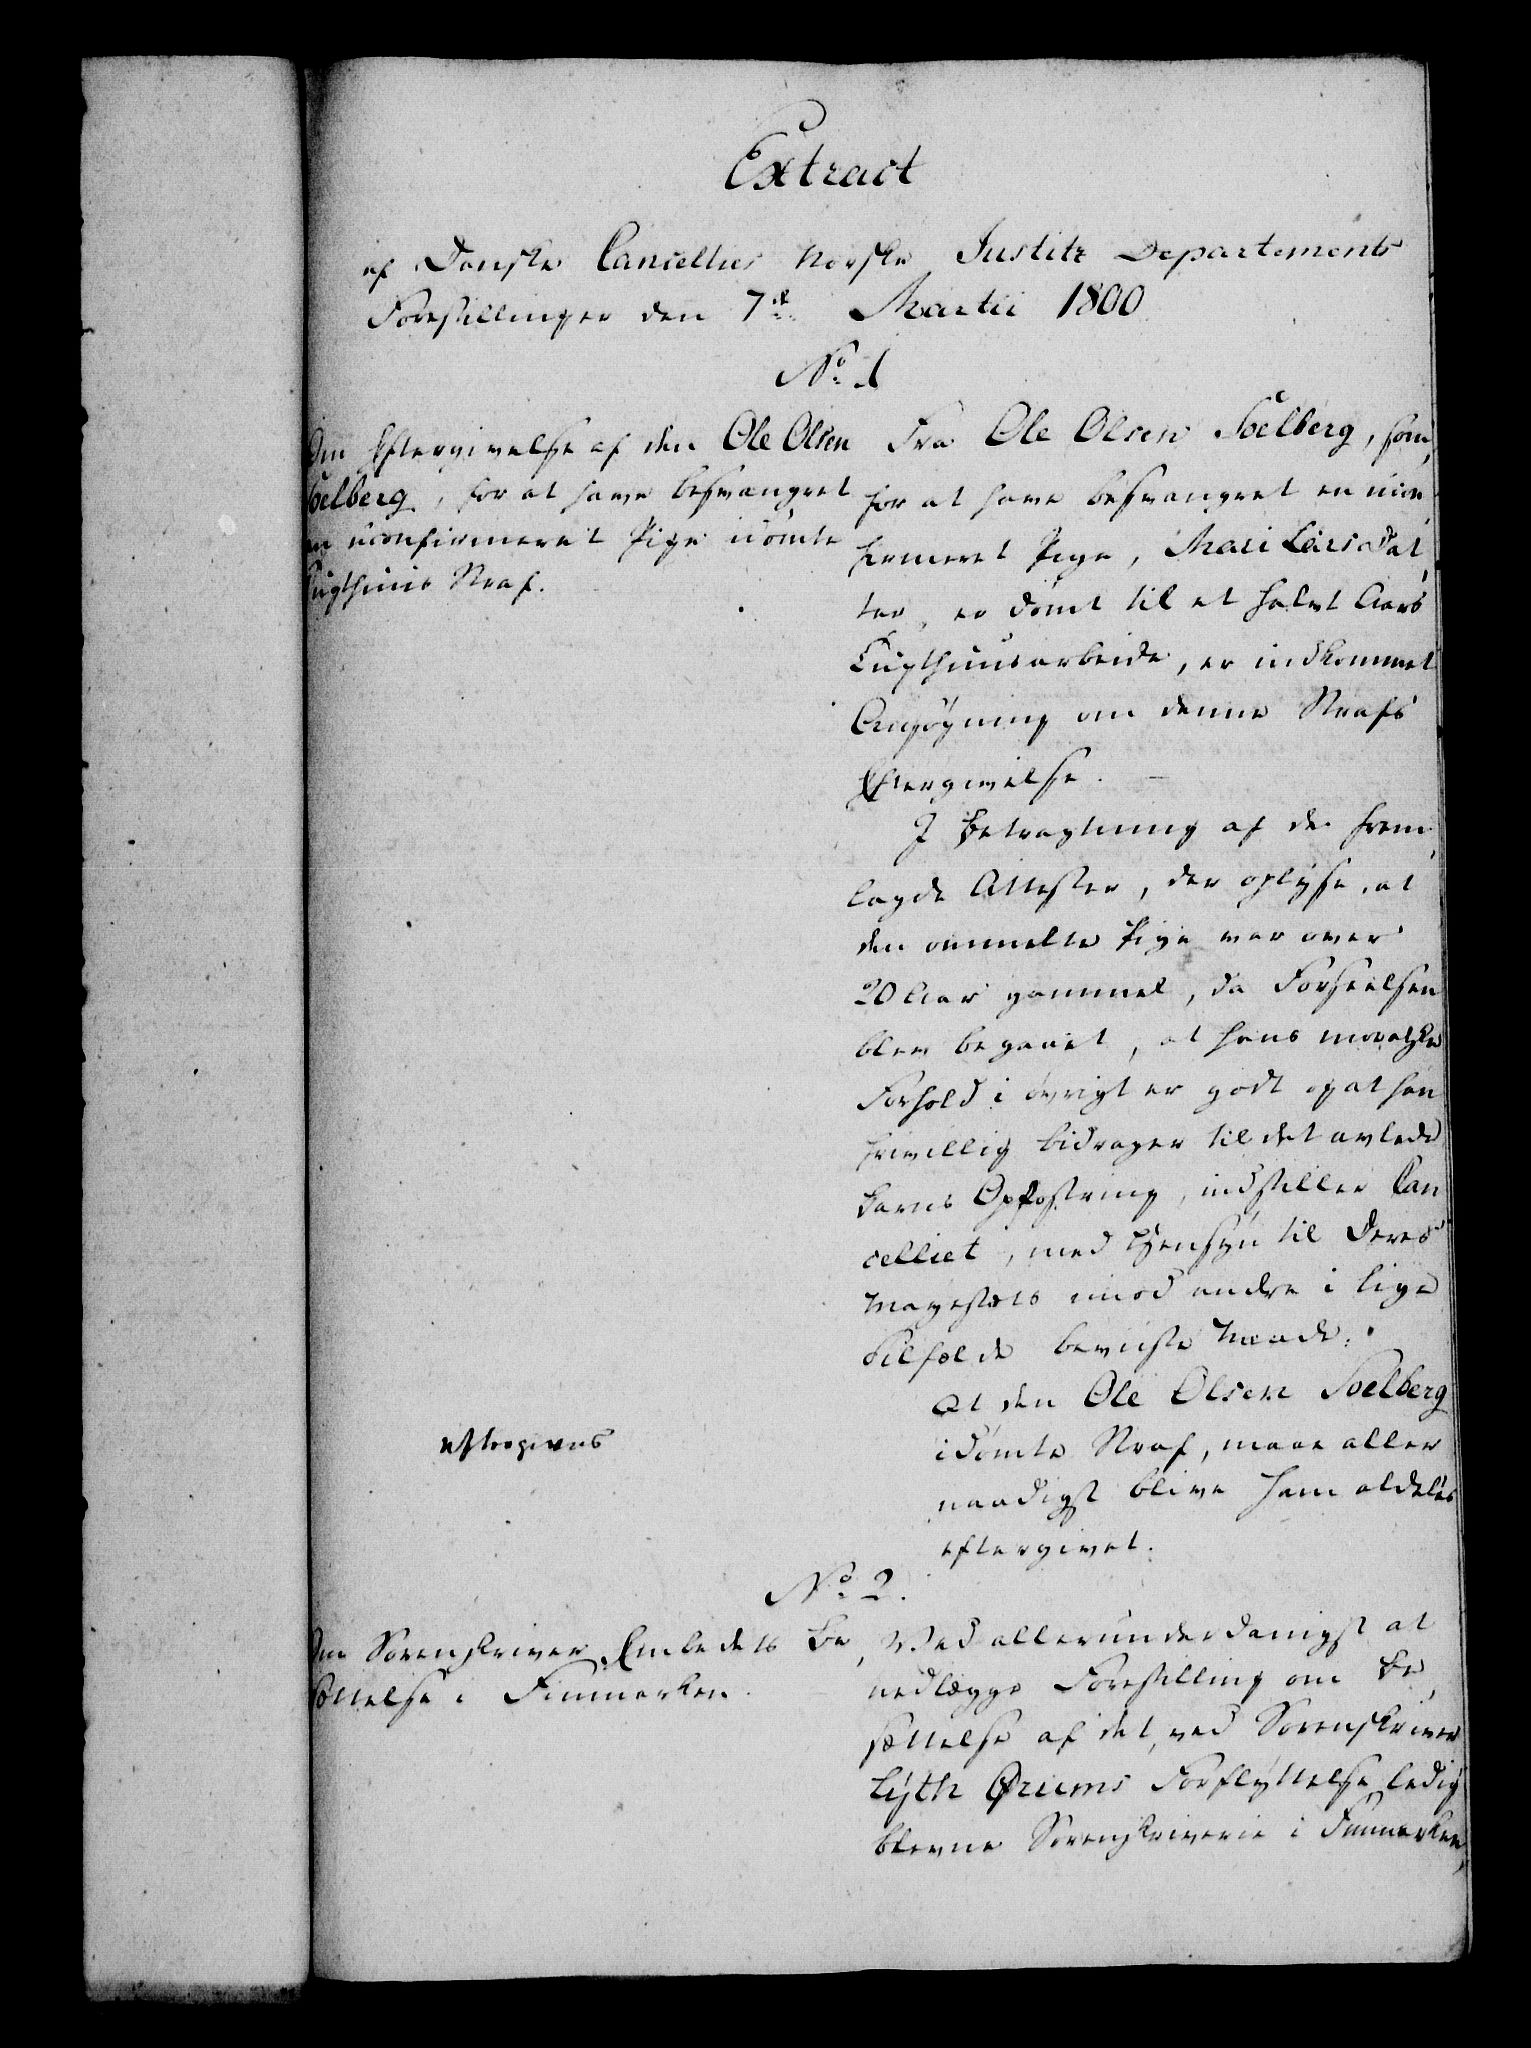 Extract
af Danske Cancellies Norske Justitz Departements
Forestillinger den 7de Martii 1800
No 1
Om Eftergivelse af den Ole Olsen
Soelberg, for at have besvangret
en uconfirmeret Pige idömte
Tugthuus Straf.
Fra Ole Olsen Soelberg, som
for at have besvangret en ucon
firmeret Pige, Mari Larsdat
ter, er dömt til et halvt Aars
Tugthuusarbeide, er indkommet
Ansögning om denne Strafs
Eftergivelse.
I Betragtning af de frem
lagde Attester, der oplyse, at
den ommelte Pige var over
20 Aar gammel, da Forseelsen
blev begaaet, at hans moralske
Forhold i övrigt er godt og at han
frivillig bidrager til det avlede
Barns Opfostring, indstiller Can
celliet, med Hensyn til Deres
Majestæts imod andre i lige
Tilfælde beviiste Naade:
At den Ole Olsen Soelberg
idömte Straf, maae aller
naadigst blive ham aldeles
eftergivet.
eftergives
No 2.
Om Sorenskriver Embedets Be
sættelse i Finmarken.
Ved allerunderdanigst at
nedlægge Forestilling om Be
sættelse af det, ved Sorenskriver
Lyth Ørums Forflyttelse ledig
blevne Sorenskriverie i Finmarken,